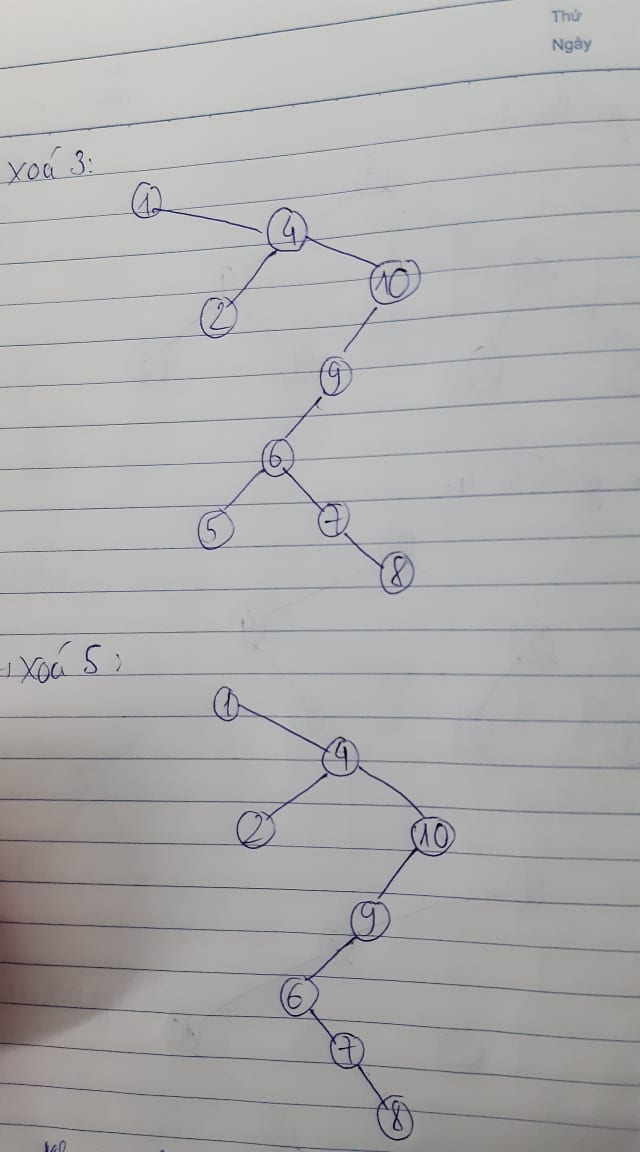 Thứ
Ngày
Xoá 3:
1
4
10
2
9
6
5
7
8
Xoá 5:
1
4
2
10
9
6
7
8